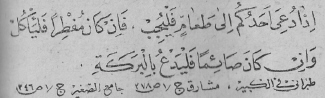 اِذَا دُعِىَ اَحَدُكُمْ اِلٰى طَعَامٍ فَلْيُجِبْ . فَاِنْ كَانَ مُفْطِرًا فَلْيَأْكُلْ
وَاِنْ كَانَ صَائِمًا فَلْيَدْعُ بِالْبَرَكَةِ .
طبرانى فى الكبير ، مشارق ج ١ ص ٢٨٥ جامع الصغير ج ١ ص ٣٤٦